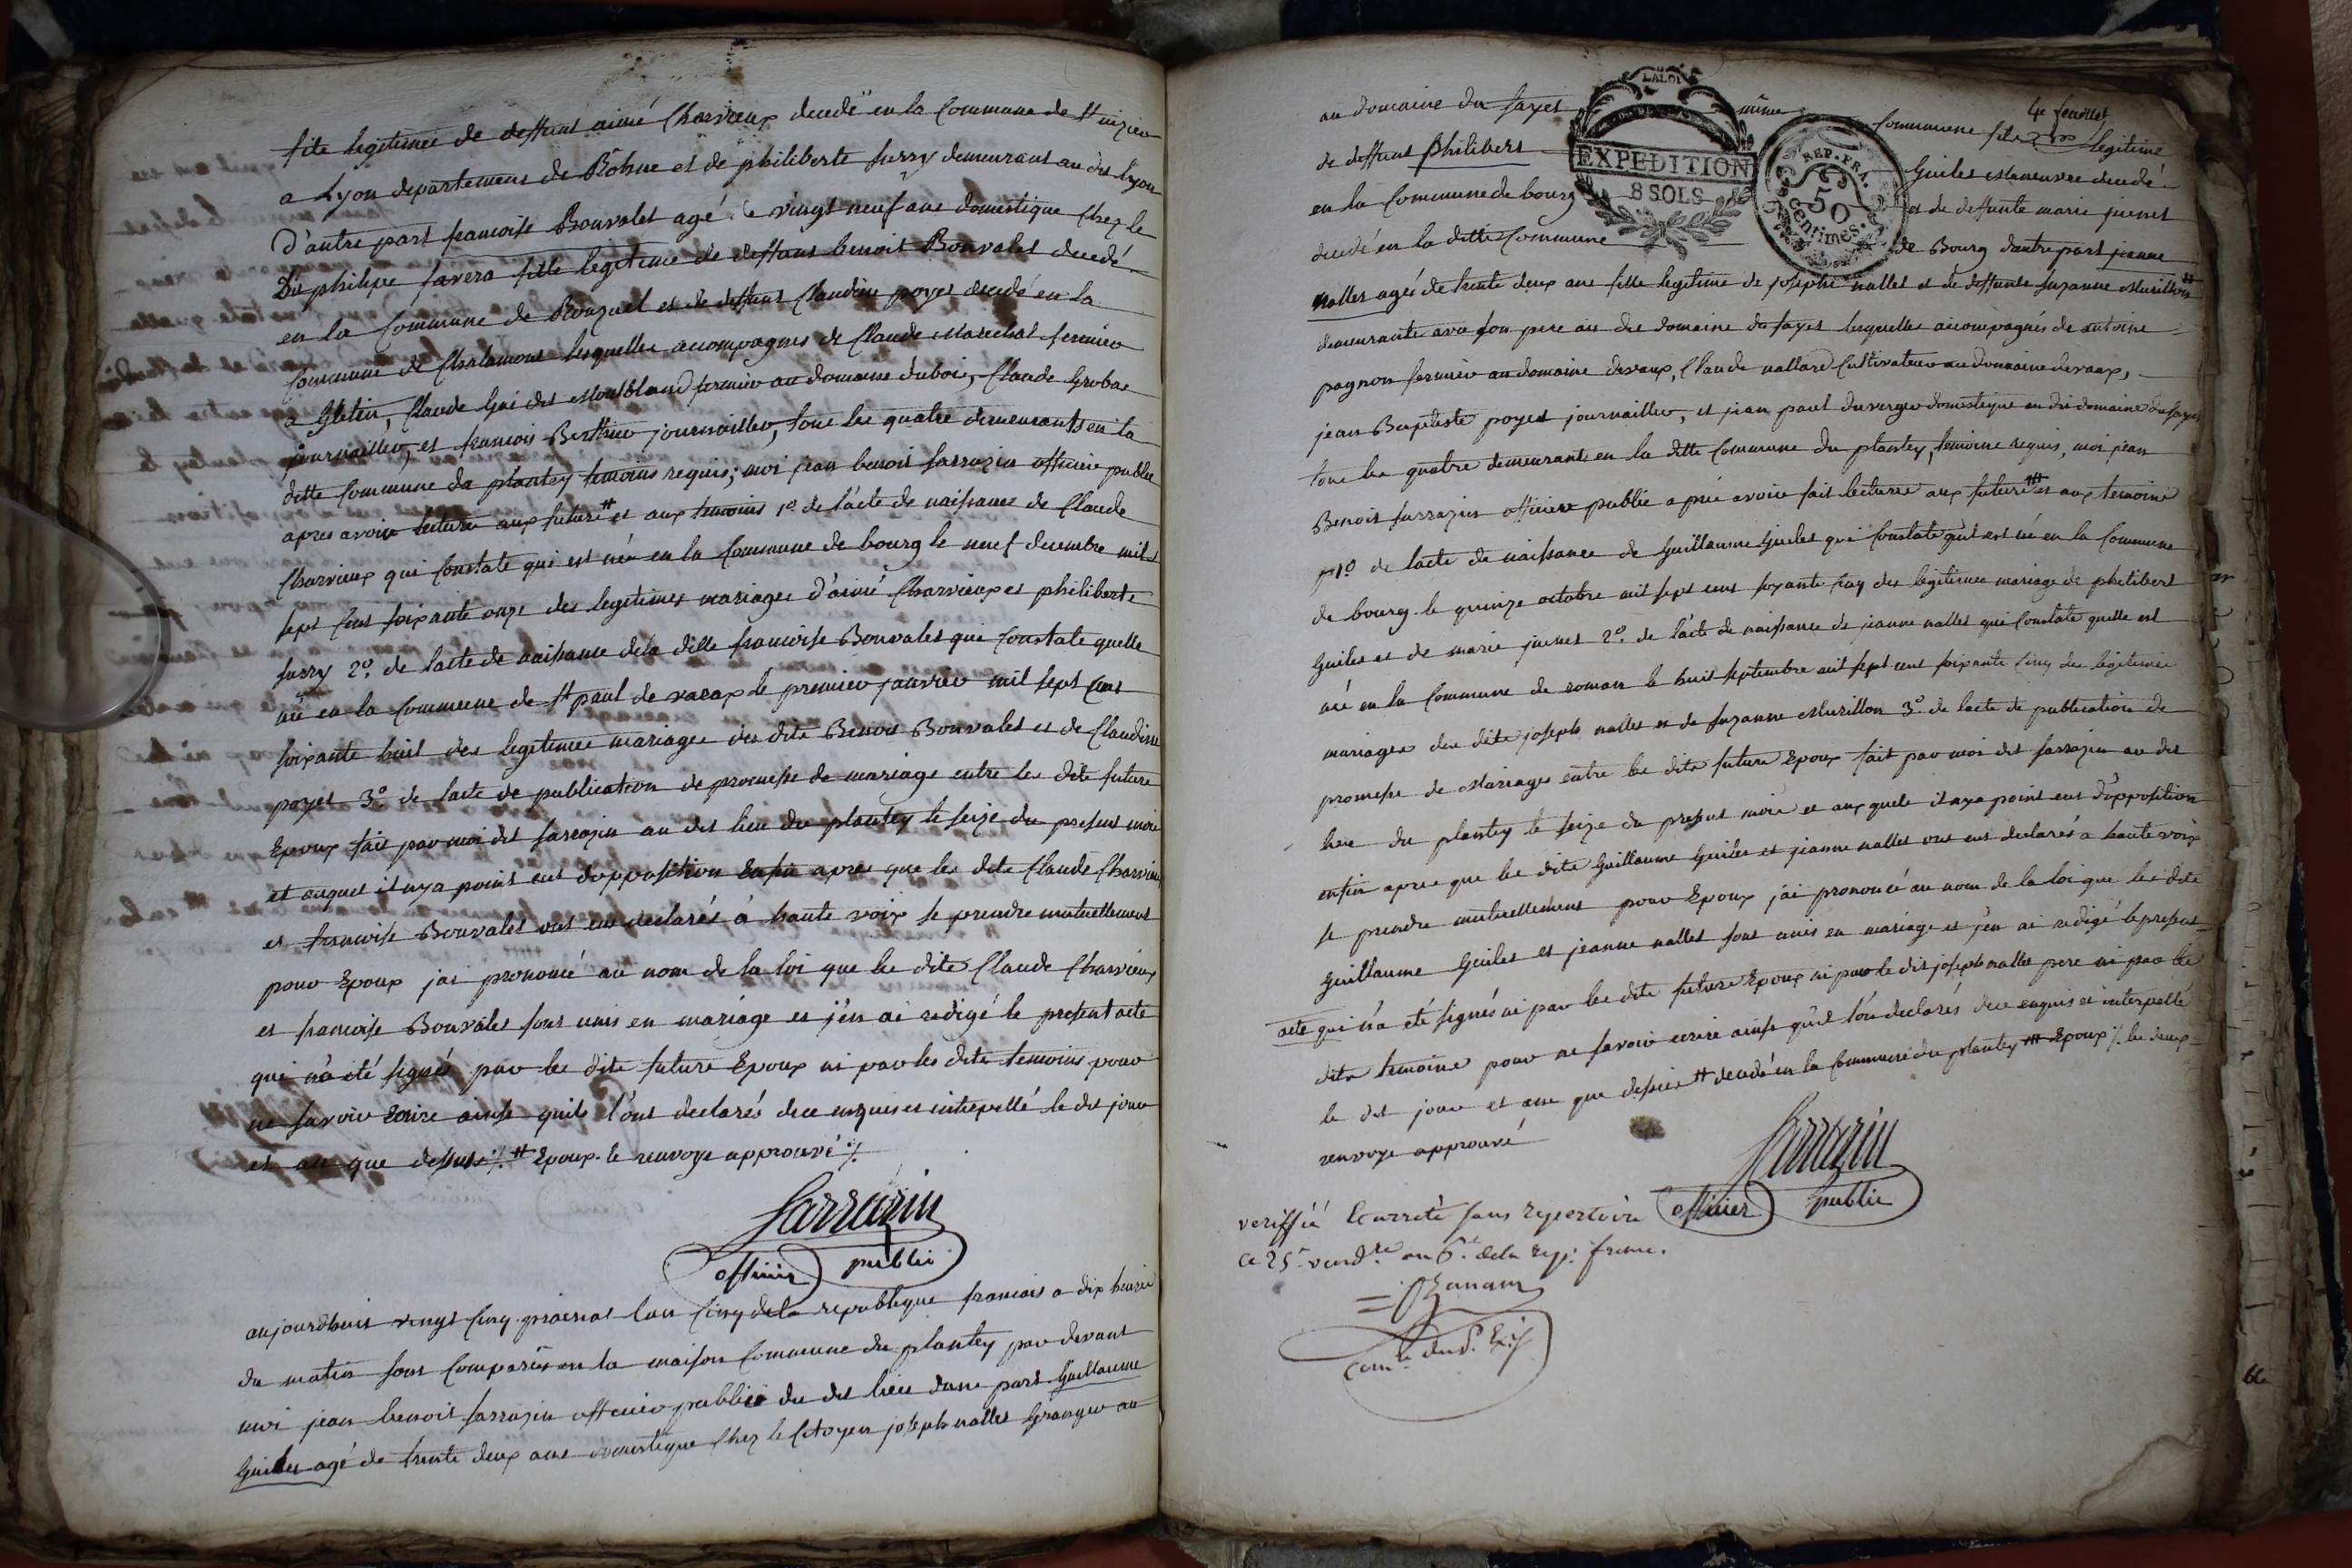 fils legitimes de deffunt aimé Charvieux decedé en la Commune de St nizier
a Lyon departement de Rohne et de philiberte furry demeurant au dit lyon
D'autre part francoise Bonvalet agé de vingt neuf ans domestique Chez le
Dit philipe favera fille legitime de deffunt benoit Bonvalet decedé
en la Commune de Ronzuel et de deffunt Claudine poyet decedé en la
Commune de Chalamont lesquelles accompagnés de Claude Marechal fermier
a Gletin, Claude Gui des Monbland fermier au domaine dubois, Claude Grobas
journaillier, et francois Berthier journaillier, tous les quatre demeurants en la
ditte Commune du plantey temoins requis; moi jean benoit sarrazin officier public
apres avoir lecture aux futurs # et aux temoins 1o. de l'acte de naissance de Claude
Charvieux qui Constate qui est née en la Commune de bourg le neuf decembre mil
sept Cent soixante onze des legitimes mariages d'aimé Charvieux et philiberte
furry 2o. de lacte de naissance de la ditte francoise Bonvalet qui Constate quelle
née en la Commune de St paul de varax le premier janvier mil sept Cent
soixante huit des legitimes mariages des dits Benoit Bonvalet et de Claudine
poyet 3o. de lacte de publication de promesse de mariage entre les dits futurs
Epoux fait par moi dit sarrazin au dit lieu du plantey le seize du present mois
et auquel il nya point eut dopposition Enfin apres que les dits Claude Charvieux
et francoise Bonvalet ont eut declarés à haute voix se prendre mutuellement
pour Epoux jai prononcé au nom de la loi que les dits Claude Charvieux
et francoise Bonvalet sont unis en mariage et j'en ai redigé le present acte
qui n'a été signés par les dits futurs Epoux ni par les dits temoins pour
ne savoir Ecrire ainsi quils l'ont declarés dece enquis et interpellé le dit jour
et an que dessus ·/. # Epoux. le renvoye approuvé ·/.
Sarrazin
officier public
aujourdhuit vingt cinq prairial lan Cinq de la republique francois a dix heures
du matin sont Comparus en la maison Commune du plantey par devant
moi jean benoit sarrazin officier public du dit lieu dune part Guillaume
Guiles agé de trente deux ans domestique Chez le Citoyen joseph nallet Granger au
4e feuillet
au domaine du fayet même Commune fils legitime
de deffunt Philibert Guiles Maneuvre decedé
en la Commune de bourg et de deffunte marie jeunet
decedé en la ditte Commune de Bourg dautre part jeanne
LALOI
EXPEDITION
8 SOLS
REP. FRA.
50
centimes.
nallet agée de trente deux ans fille legitime de joseph nallet et de deffunte suzanne Murillon #
demeurante avec son pere au dit domaine du fayet lesquelles accompagnés de antoine
pagnon fermier au domaine devaux, Claude nallard Cultivateur au domaine devaux,
jean Baptiste poyet journaillier, et jean paul duverger domestique au dit domaine du fayet
tous les quatre demeurants en la ditte Commune du plantey, temoins requis, moi jean
Benoit sarrazin officier public aprés avoir fait lecture aux futurs ### et aux temoins
1o. de lacte de naissance de Guillaume Guiles qui Constate qu'il est né en la Commune
de bourg le quinze octobre mil sept cens soyante Cinq des legitimes mariage de philibert
Guiles et de marie jeunet 2o. de l'acte de naissance de jeanne nallet qui Constate quelle est
née en la Commune de romans le huit septembre mil sept cent soixante Cinq des legitimes
mariages des dits joseph nallet et de suzanne Murillon 3o. de lacte de publication de
promesse de Mariage entre les dits futurs Epoux fait par moi dit sarrazin au dit
lieu du plantey le seize du present mois et aux quels il nya point eut d'opposition
enfin apres que les dits Guillaume Guiles et jeanne nallet ont eut declarés a haute voix
se prendre mutuellement pour Epoux j'ai prononcé au nom de la loi que les dits
Guillaume Guiles et jeanne nallet sont unis en mariage et j'en ai redigé le present
acte qui n'a eté signés ni par les dits futurs Epoux ni par le dit joseph nallet pere ni par les
dits temoins pour ne savoir ecrire ainsi qu'il l'on declarés dece enquis et interpellé
le dit jour et an que dessus # decedé en la Commune du plantey ### Epoux ·/. les deux
renvoye approuvé
Sarrazin
officier public
veriffié Et arreté sans repertoire
ce 25 vend.re an 6.e dela rep. franc.